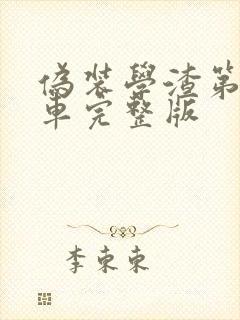 偽裝學渣第
車完整版
李東東